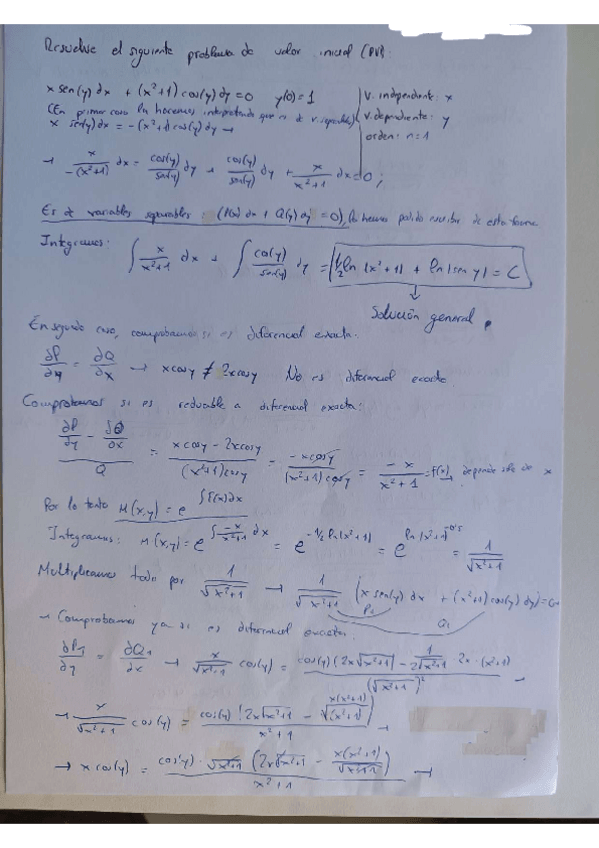 Resuelve el siguiente problema de valor inicial (PVI):
x sen(y) dx + (x²+1) cos(y) dy = 0 y(0) = 1
V. independiente: x
V. dependiente: y
orden: n=1
(En primer caso lo hacemos interpretando que es de v. separables)
x sen(y) dx = -(x²+1) cos(y) dy →
→ x/-(x²+1) dx = cos(y)/sen(y) dy → cos(y)/sen(y) dy + x/x²+1 dx = 0;
Es de variables separables: (P(x) dx + Q(y) dy = 0), lo hemos podido escribir de esta forma
Integramos: ∫ x/x²+1 dx + ∫ cos(y)/sen(y) dy = 1/2 ln|x²+1| + ln|sen y| = C
↓
Solución general.
En segundo caso, comprobamos si es diferencial exacta.
∂P/∂y = ∂Q/∂x → x cos y ≠ 2x cos y No es diferencial exacta.
Comprobamos si es reducible a diferencial exacta:
(∂P/∂y - ∂Q/∂x)/Q = (x cos y - 2x cos y)/((x²+1) cos y) = -x cos y/((x²+1) cos y) = -x/x²+1 = f(x), depende sólo de x
Por lo tanto M(x,y) = e^∫f(x)dx
Integramos: M(x,y) = e^∫ -x/x²+1 dx = e^-1/2 ln|x²+1| = e^ln|x²+1|^-0'5 = 1/√x²+1
Multiplicamos todo por 1/√x²+1 → 1/√x²+1 (x sen(y) dx + (x²+1) cos(y) dy) = 0
P₁ Q₁
→ Comprobamos ya si es diferencial exacta:
∂P₁/∂y = ∂Q₁/∂x → x/√x²+1 cos(y) = (cos(y) (2x√x²+1) - 1/2√x²+1 2x · (x²+1))/(√x²+1)² →
→ x/√x²+1 cos(y) = cos(y) (2x√x²+1 - x(x²+1)/√(x²+1))/x²+1 →
→ x cos(y) = cos(y) · √x²+1 (2x√x²+1 - x(x²+1)/√x²+1)/x²+1 →